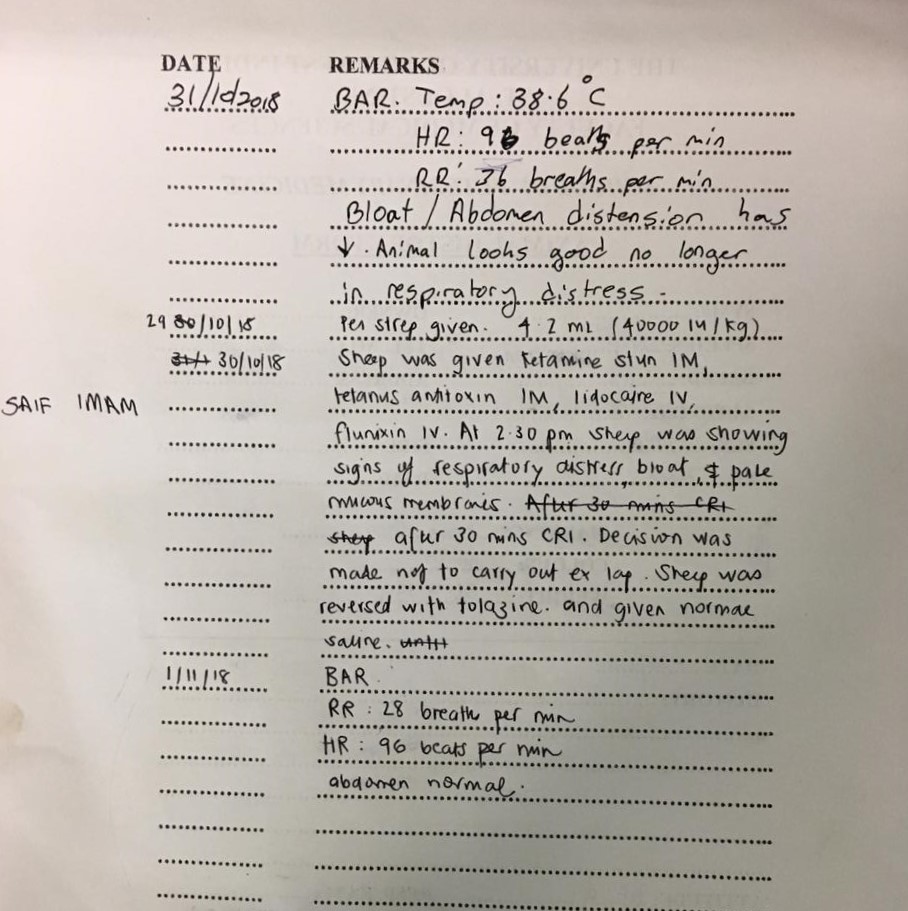 DATE REMARKS
31/10/2018 BAR. Temp: 38.6°C
HR: 96 beats per min
RR: 36 breaths per min
Bloat / Abdomen distension has
↓. Animal looks good no longer
in respiratory distress -
29 30/10/18 Pen strep given. 4.2 mL (40000 IU/kg)
31/1 30/10/18 Sheep was given ketamine stun IM,
SAIF IMAM tetanus antitoxin IM, lidocaine IV,
flunixin IV. At 2.30 pm sheep was showing
signs of respiratory distress, bloat, & pale
mucous membranes. After 30 mins CRI
sheep after 30 mins CRI. Decision was
made not to carry out ex lap. Sheep was
reversed with tolazine. and given normal
saline. until
1/11/18 BAR.
RR : 28 breath per min
HR : 96 beats per min
abdomen normal.